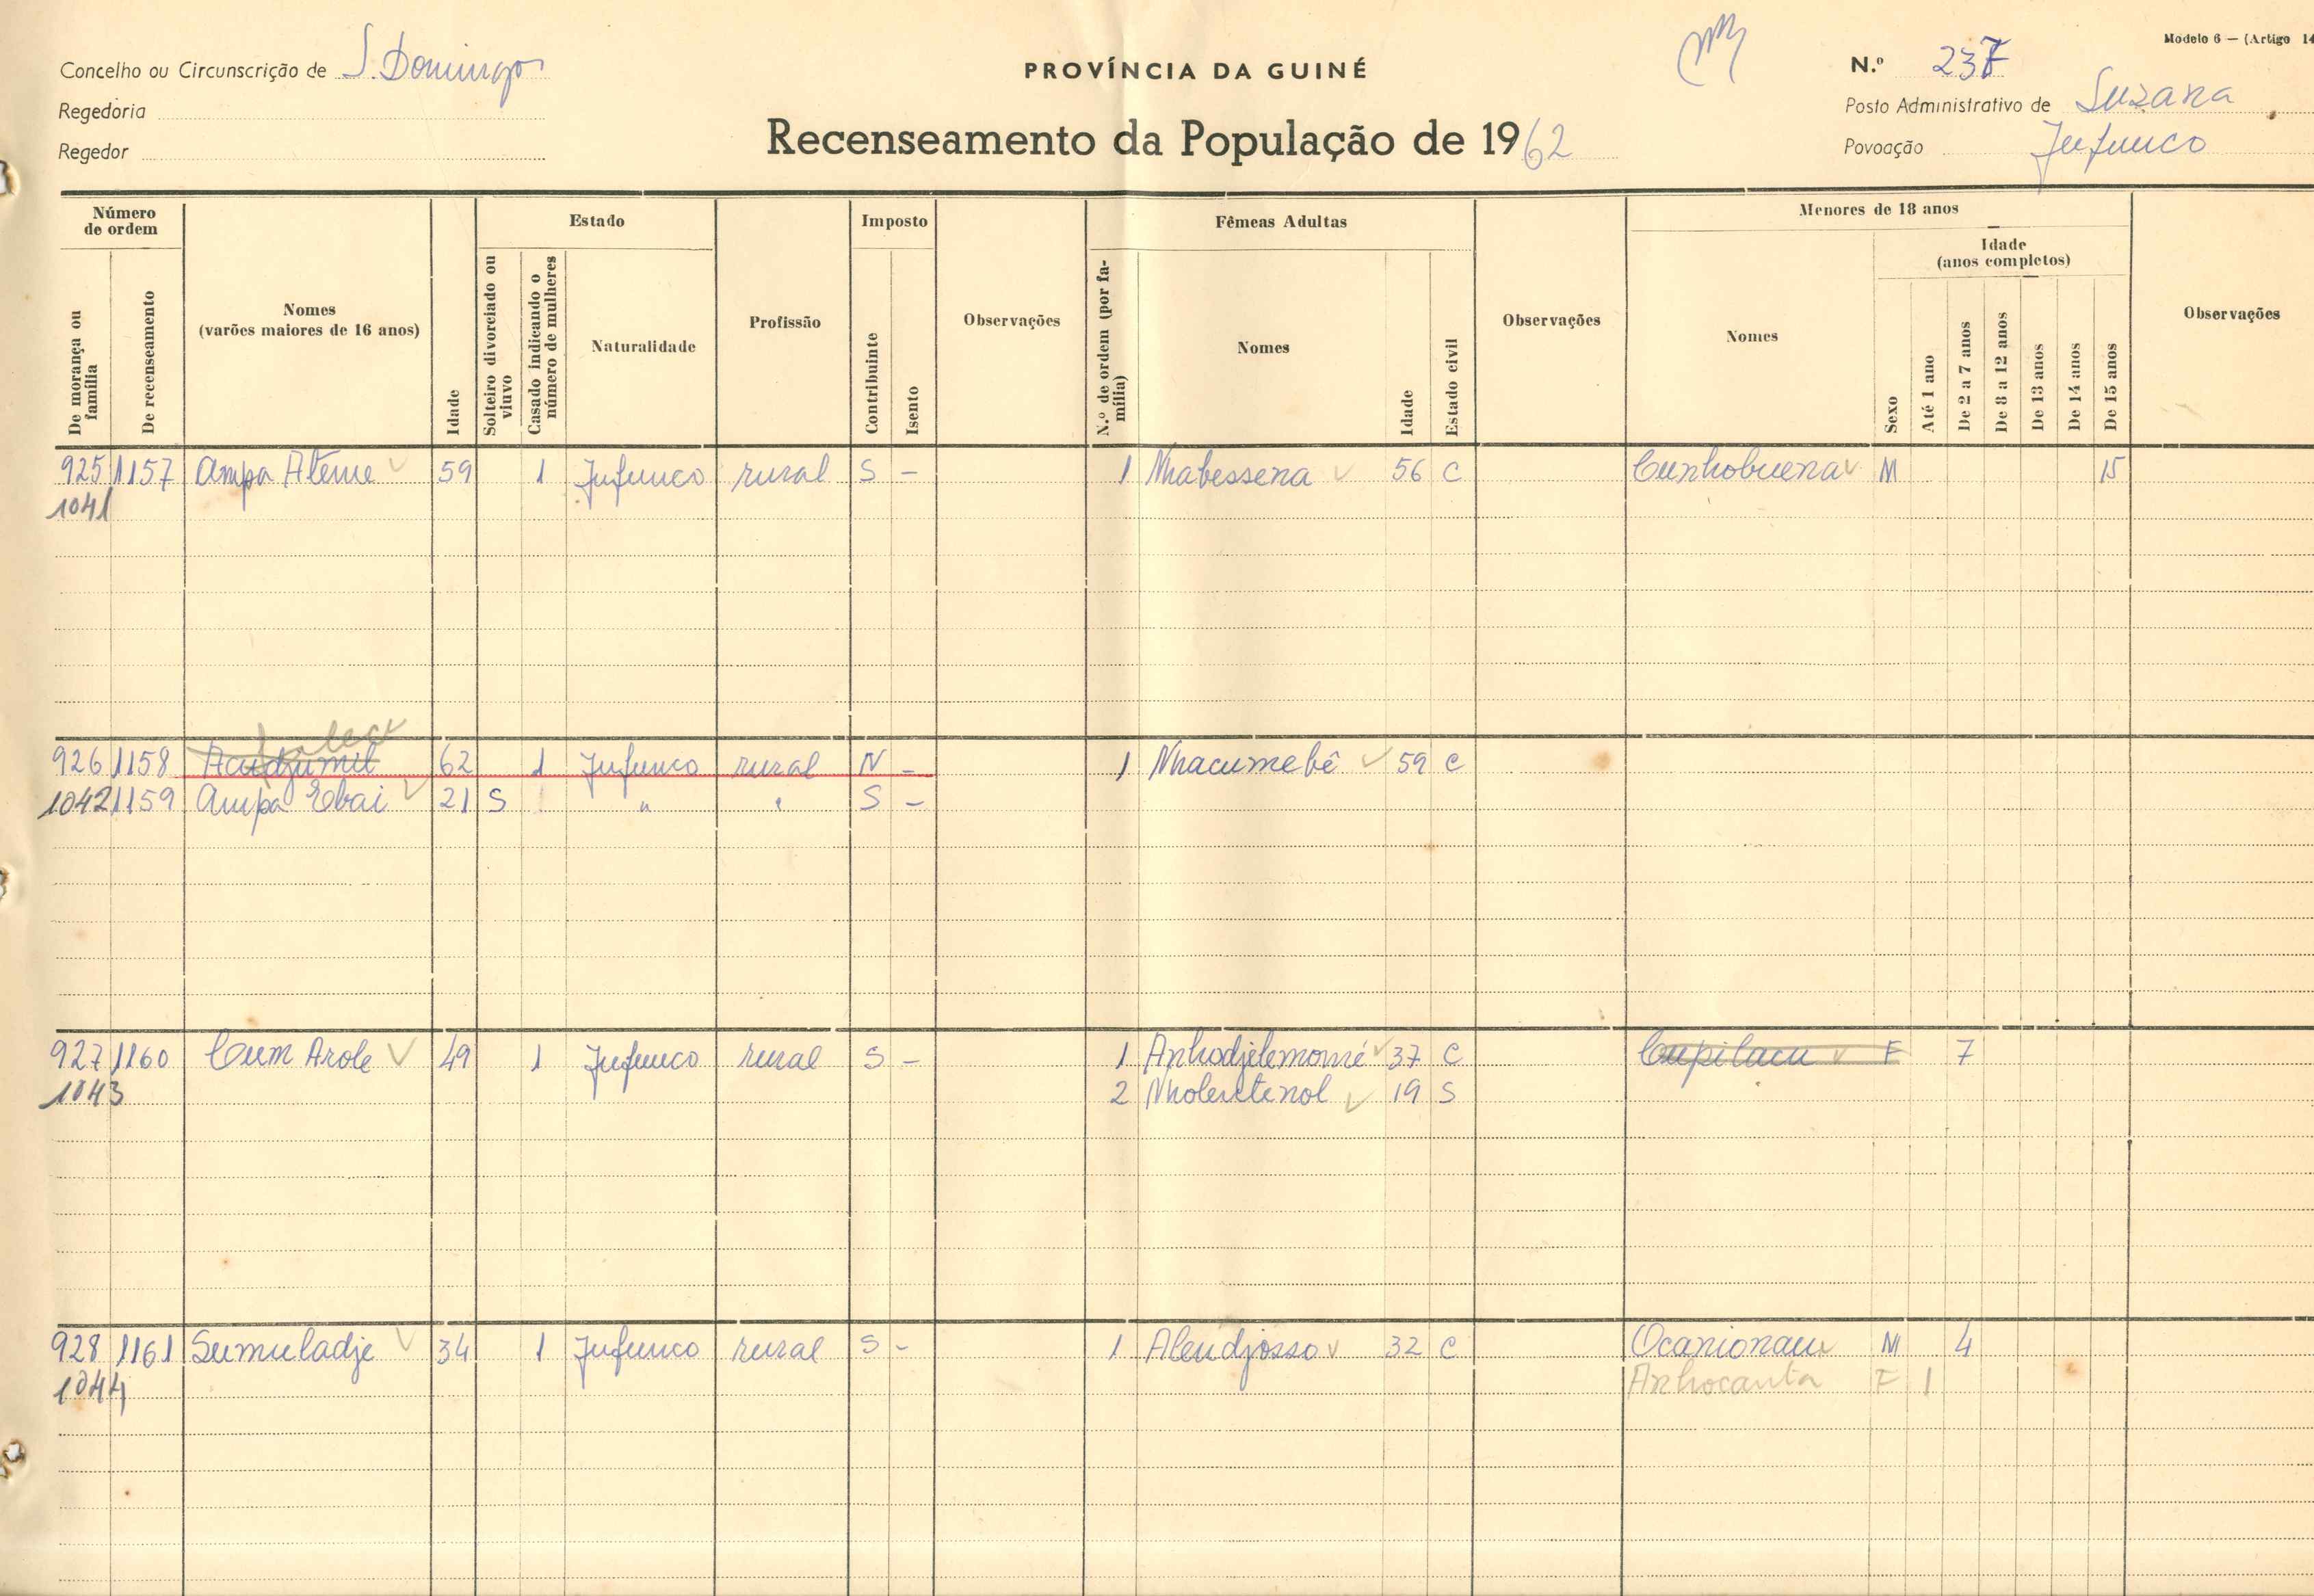 Modelo 6 — (Artigo 14
Concelho ou Circunscrição de S. Domingos
PROVÍNCIA DA GUINÉ
N.º 237
Regedoria
Posto Administrativo de Suzana
Regedor
Recenseamento da População de 1962
Povoação Jufunco
Número de ordem
De morança ou família
De recenseamento
Nomes
(varões maiores de 16 anos)
Idade
Estado
Solteiro divorciado ou viuvo
Casado indicando o número de mulheres
Naturalidade
Profissão
Imposto
Contribuinte
Isento
Observações
Fêmeas Adultas
N.º de ordem (por família)
Nomes
Idade
Estado civil
Observações
Menores de 18 anos
Nomes
Sexo
Idade
(anos completos)
Até 1 ano
De 2 a 7 anos
De 8 a 12 anos
De 13 anos
De 14 anos
De 15 anos
Observações
925 1157 Ampa Ateme 59 1 Jufunco rural S - 1 Nhabessena 56 C Cunhobuena M 15
1041
926 1158 62 1 Jufunco rural N - 1 Nhacumebê 59 C
1042 1159 Ampa Ebai 21 S " " S -
927 1160 Cum Arole 49 1 Jufunco rural S - 1 Anhodjelemomé 37 C Cupilacu F 7
1043 2 Nholentenol 19 S
928 1161 Sumuladje 34 1 Jufunco rural S - 1 Alendjosso 32 C Ocanionau M 4
1044 Anhocanta F 1